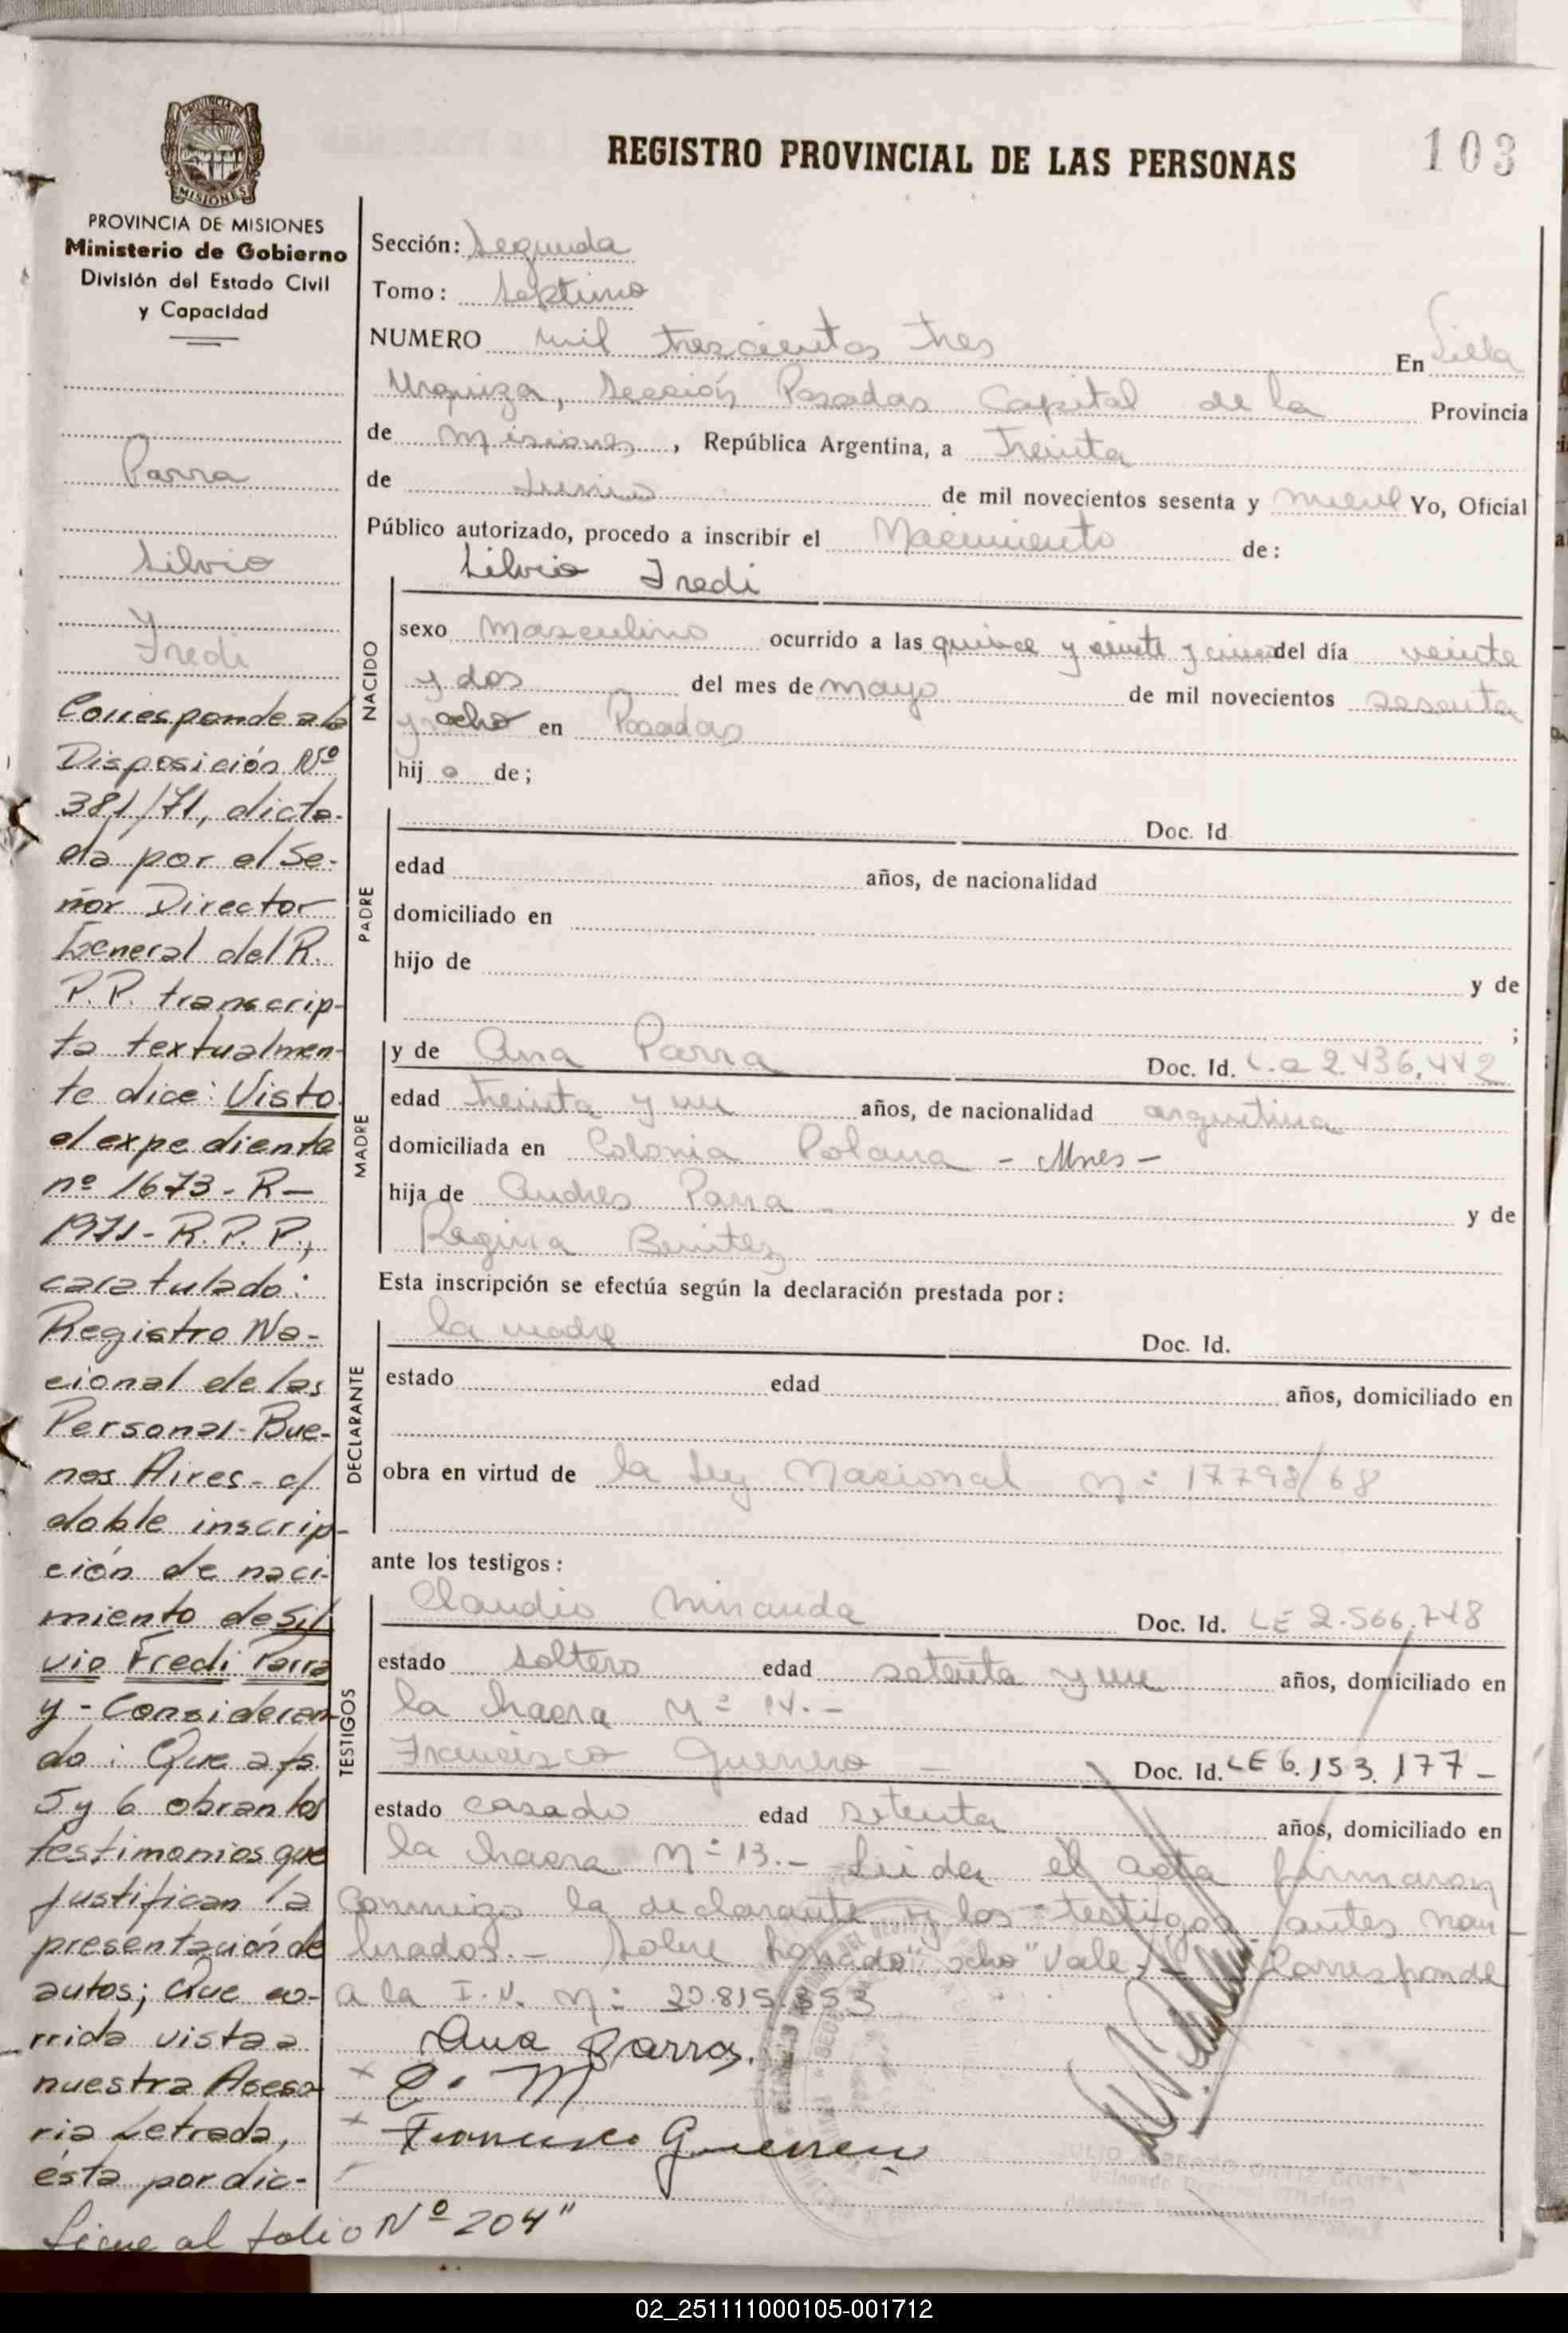 PROVINCIA DE MISIONES
PROVINCIA DE MISIONES
Ministerio de Gobierno
División del Estado Civil
y Capacidad
REGISTRO PROVINCIAL DE LAS PERSONAS
103
Sección: Segunda
Tomo: Septimo
NUMERO mil trescientos tres En Villa
Urquiza, Sección Posadas Capital de la Provincia
de Misiones, República Argentina, a treinta
de Junio de mil novecientos sesenta y nueve Yo, Oficial
Público autorizado, procedo a inscribir el Nacimiento de:
Silvio Fredi
NACIDO
sexo masculino ocurrido a las quince y veinte y cinco del día veinte
y dos del mes de mayo de mil novecientos sesenta
y ocho en Posadas
hijo de;
PADRE
Doc. Id
edad años, de nacionalidad
domiciliado en
hijo de y de
;
MADRE
y de Ana Parra Doc. Id. L.C 2.436.442
edad treinta y un años, de nacionalidad argentina
domiciliada en Colonia Polana - Mnes -
hija de Andres Parra - y de
Regina Benitez
Esta inscripción se efectúa según la declaración prestada por:
DECLARANTE
la madre Doc. Id.
estado edad años, domiciliado en
obra en virtud de la Ley Nacional Nº 17798/68
ante los testigos:
TESTIGOS
Claudio Miranda Doc. Id. LE 2.566.748
estado soltero edad setenta y un años, domiciliado en
la chacra Nº 14.-
Francisco Guerrero - Doc. Id. LE 6.153.177-
estado casado edad setenta años, domiciliado en
la chacra Nº 13.- Leida el acta firmaron
conmigo la declarante y los testigos antes nom-
brados.- Sobre borrado "ocho" Vale.- Corresponde
a la I.N. Nº 20.815.853
Ana Parra.
x C. M
x Francisco Guerrero
JULIO ALBERTO ORTIZ COSTA
Delegado Regional Titular
Parra
Silvio
y
Fredi
Corresponde a la
Disposición Nº
381/71, dicta-
da por el Se-
ñor Director
General del R.
P.P. transcrip-
ta textualmen-
te dice: Visto
el expediente
nº 1673-R-
1971-R.P.P.,
caratulado:
Registro Na-
cional de las
Personas-Bue-
nos Aires-s/
doble inscrip-
ción de naci-
miento de Sil
vio Fredi Parra
y-Consideran-
do: Que a fs.
5 y 6 obran los
testimonios que
justifican la
presentación de
autos; Que co-
rrida vista a
nuestra Aseso-
ria Letrada,
ésta por dic-
Sigue al folio Nº 204"
02_251111000105-001712